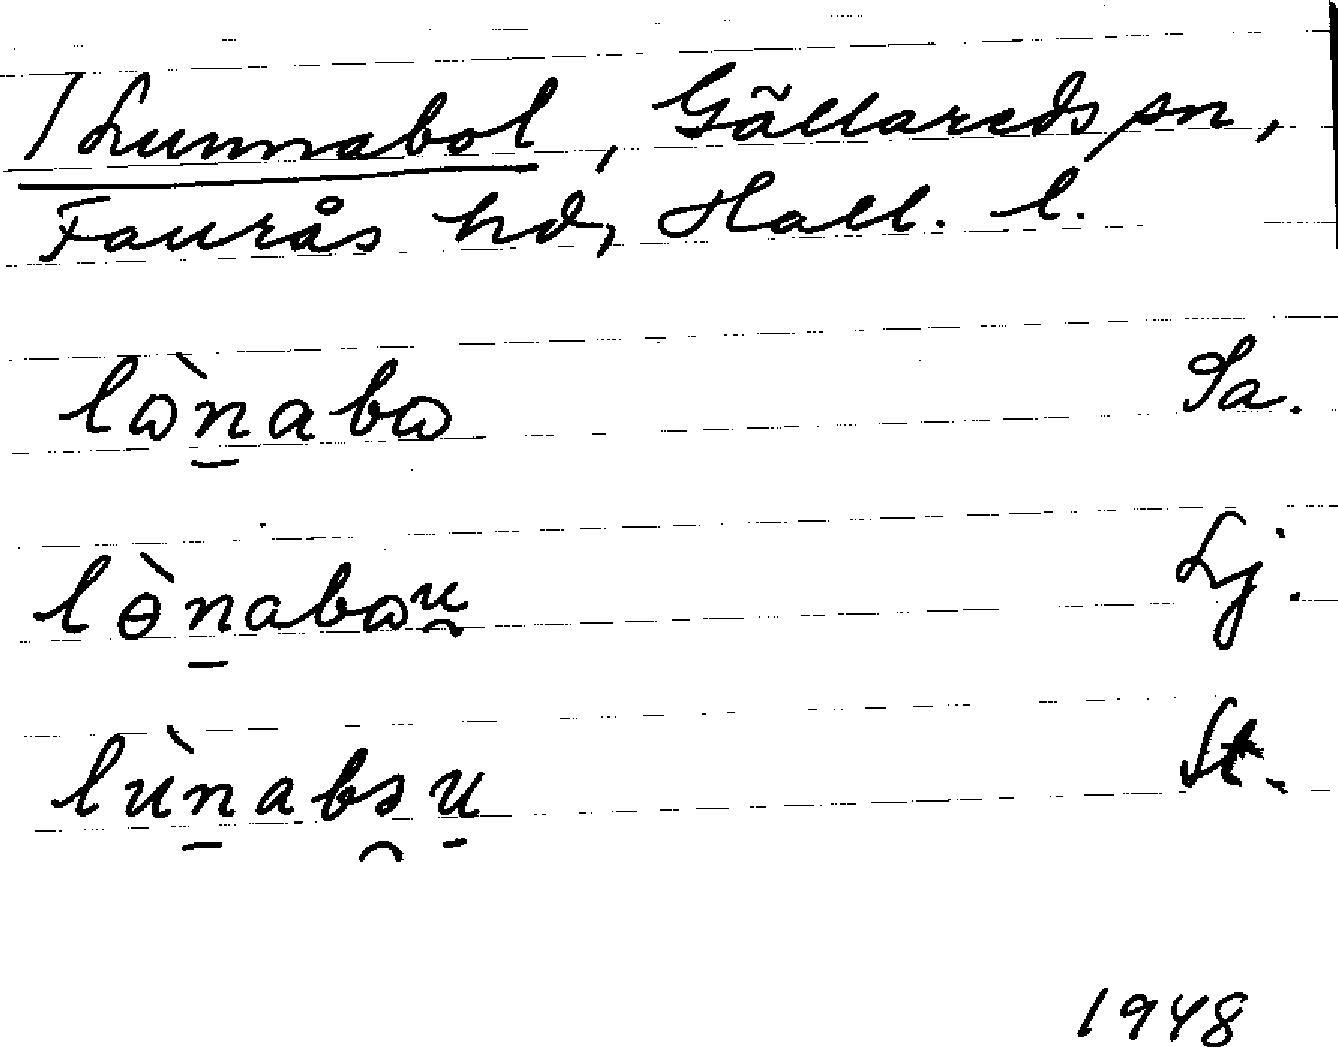 /Lunnabol, Gällareds sn,
Faurås hd, Hall. l.
lɷ̀n̲abɷ Sa.
lɵ̀n̲abɷu̯ Lj.
lùn̲abɔ̯u̲ St.
1948